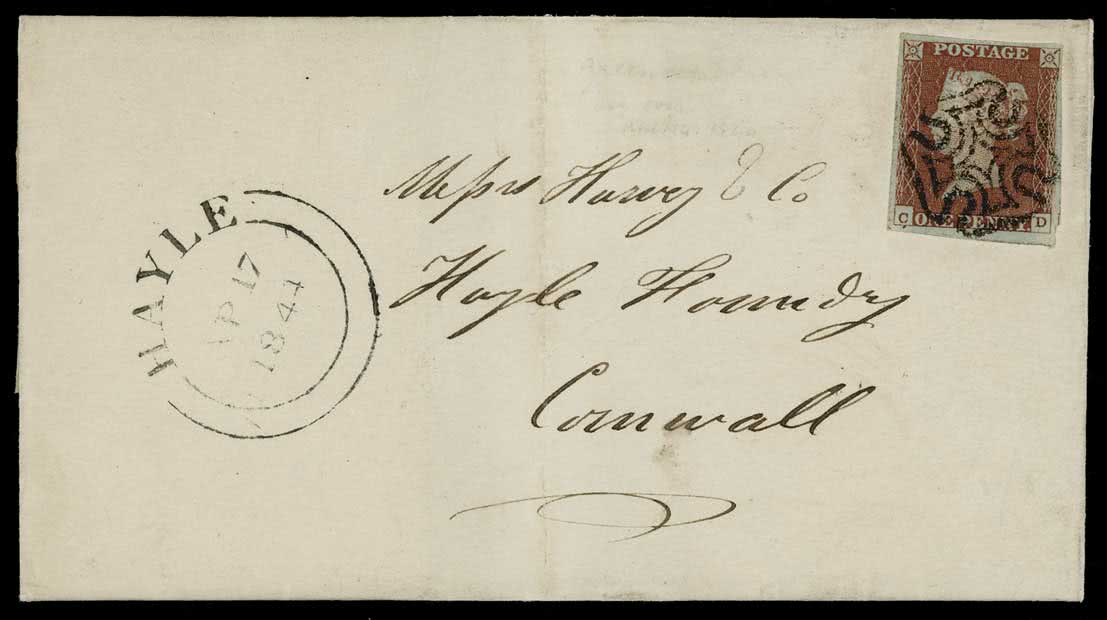 POSTAGE
C ONE PENNY D
Messrs Harvey & Co
Hayle Foundry
Cornwall
HAYLE
AP 17
1844